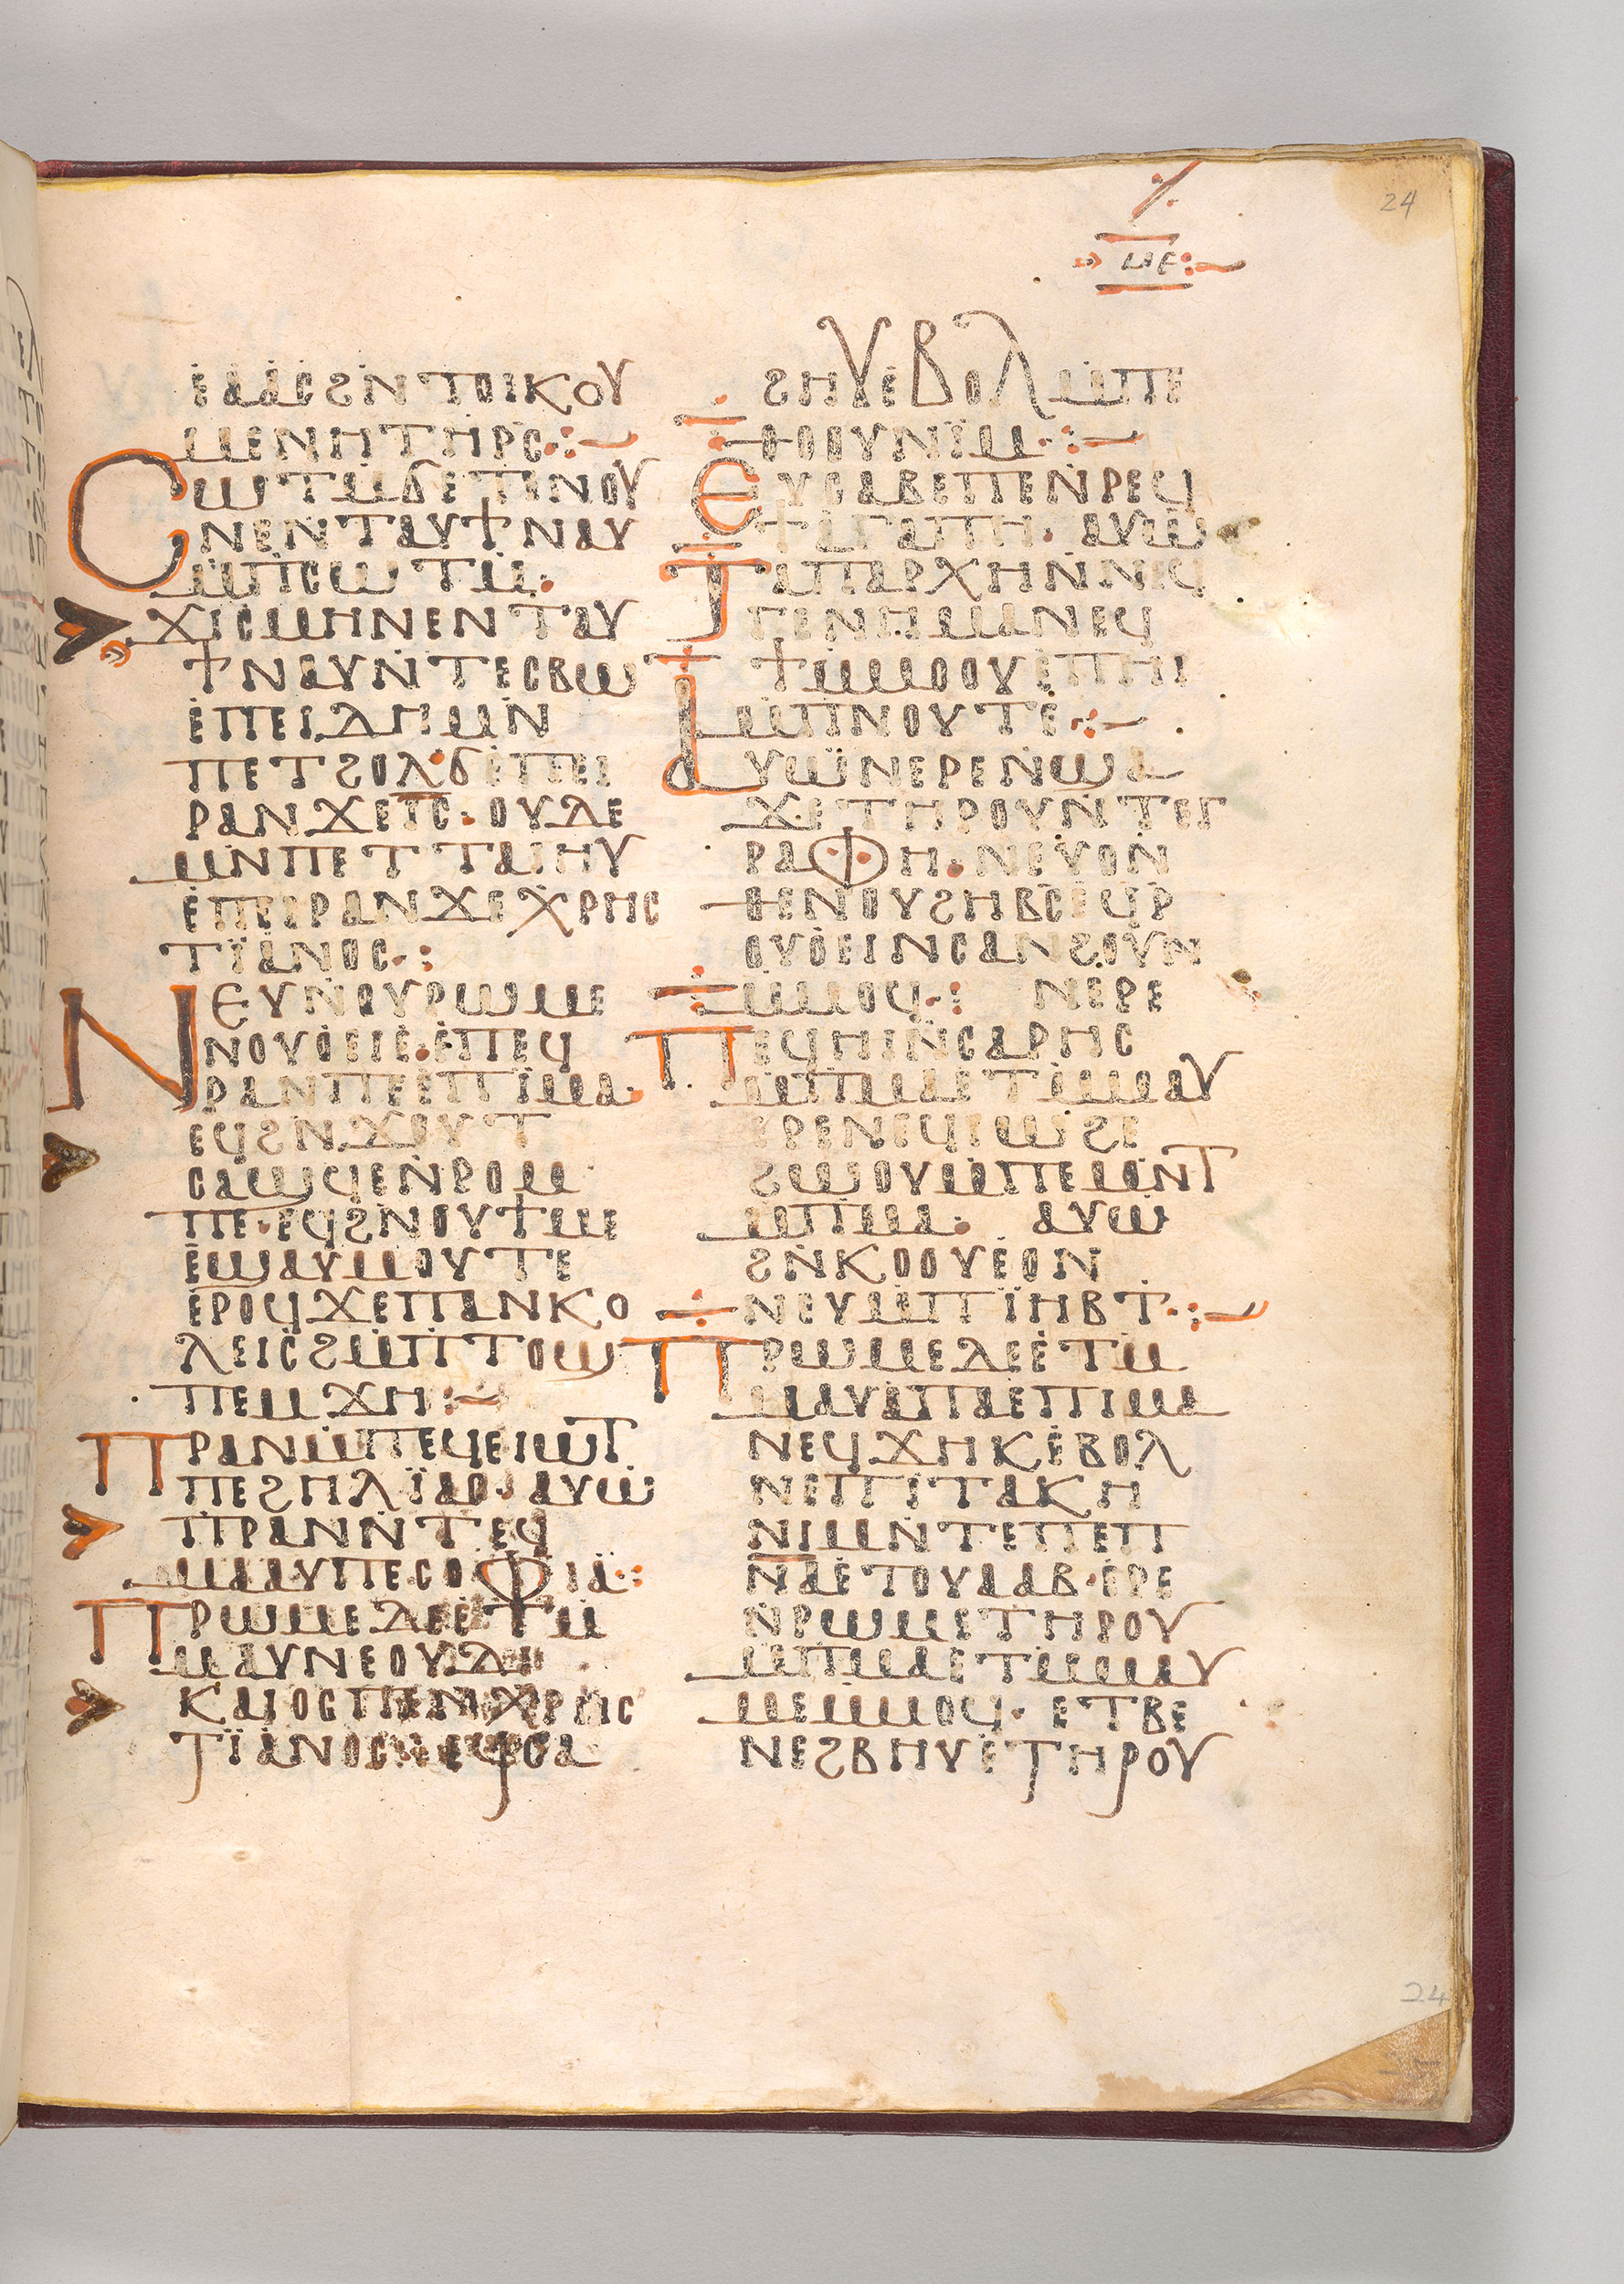 24
ⲙⲉ
ⲉⲁⲁⲥϩⲛⲧⲟⲓⲕⲟⲩ
ⲙⲉⲛⲏⲧⲏⲣⲥ
ⲥⲱⲧⲙϭⲉⲧⲉⲛⲟⲩ
ⲛⲉⲛⲧⲁⲩϯⲛⲁⲩ
ⲙⲡⲥⲱⲧⲙ·
ϫⲓⲥⲙⲏⲛⲉⲛⲧⲁⲩ
ϯⲛⲁⲩⲛⲧⲉⲥⲃⲱ
ⲉⲡⲉⲓⲇⲏⲙⲛ
ⲡⲉⲧϩⲟⲗϭⲉⲡⲉⲓ
ⲣⲁⲛϫⲉⲓ̅ⲥ̅·ⲟⲩⲇⲉ
ⲙⲛⲡⲉⲧⲧⲁⲓⲏⲩ
ⲉⲡⲉⲓⲣⲁⲛϫⲉⲭⲣⲏⲥ
ⲧⲓⲁⲛⲟⲥ:
ⲛⲉⲩⲛⲟⲩⲣⲱⲙⲉ
ⲛⲟⲩⲟⲉⲓⲉ·ⲉⲡⲉϥ
ⲣⲁⲛⲡⲉⲉⲡⲓⲙⲁ·
ⲉϥϩⲛϫⲟⲩⲧ
ⲥⲁϣϥⲉⲛⲣⲟⲙ
ⲡⲉ·ⲉϥϩⲛⲟⲩϯⲙⲉ
ⲉϣⲁⲩⲙⲟⲩⲧⲉ
ⲉⲣⲟϥϫⲉⲡⲁⲛⲕⲟ
ⲗⲉⲓⲥϩⲙⲡⲧⲟϣ
ⲡⲉⲙϫⲏ:
ⲡⲣⲁⲛⲙⲡⲉϥⲉⲓⲱⲧ
ⲡⲉϩⲏⲗⲓⲁⲥ·ⲁⲩⲱ
ⲡⲣⲁⲛⲛⲧⲉϥ
ⲙⲁⲁⲩⲡⲉⲥⲟⲫⲓⲁ:
ⲡⲣⲱⲙⲉⲇⲉⲉⲧⲙ
ⲙⲁⲩⲛⲉⲟⲩⲇⲓ
ⲕⲁⲓⲟⲥⲡⲉⲛⲭⲣⲏⲥ
ⲧⲓⲁⲛⲟⲥ
ϩⲏⲩⲉⲃⲟⲗⲙⲡⲉ
ⲑⲟⲟⲩⲛⲓⲙ·:
ⲉⲩⲥⲁⲃⲉⲡⲉⲛⲣⲉϥ
ϯⲁⲅⲁⲡⲏ·ⲁⲩⲱ
ⲧⲁⲡⲁⲣⲭⲏⲛⲛⲉϥ
ⲅⲉⲛⲏⲙⲁⲛⲉϥ
ϯⲙⲙⲟⲟⲩⲉⲡⲏⲓ
ⲙⲡⲛⲟⲩⲧⲉ
ⲁⲩⲱⲛⲉⲣⲉⲛϣⲁ
ϫⲉⲧⲏⲣⲟⲩⲛⲧⲉⲅ
ⲣⲁⲫⲏ·ⲛⲉⲩⲟⲛ
ⲑⲉⲛⲟⲩϩⲏⲃⲥⲉϥⲣ
ⲟⲩⲟⲉⲓⲛⲥⲁⲛϩⲟⲩⲛ
ⲙⲙⲟϥ: ⲛⲉⲣⲉ
ⲡⲉϥⲏⲓⲛⲥⲁⲣⲏⲥ
ⲙⲡⲙⲁⲉⲧⲙⲙⲁⲩ
ⲉⲣⲉⲛⲉϥⲓⲱϩⲉ
ϩⲱⲟⲩⲙⲡⲉⲙⲛⲧ
ⲙⲡⲙⲁ· ⲁⲩⲱ
ϩⲛⲕⲟⲟⲩⲉⲟⲛ
ⲛⲉⲩⲙⲡⲓⲏⲃⲧ·:
ⲡⲣⲱⲙⲉⲇⲉⲉⲧⲙ
ⲙⲁⲩⲁⲡⲁⲉⲡⲓⲙⲁ
ⲛⲉϥϫⲏⲕⲉⲃⲟⲗ
ⲛⲉⲡⲓⲧⲁⲕⲏ
ⲛⲓⲙⲛⲧⲉⲡⲉⲡ
ⲛⲁⲉⲧⲟⲩⲁⲁⲃ·ⲉⲣⲉ
ⲛⲣⲱⲙⲉⲧⲏⲣⲟⲩ
ⲙⲡⲙⲁⲉⲧⲙⲙⲁⲩ
ⲙⲉⲙⲙⲟϥ·ⲉⲧⲃⲉ
ⲛⲉϩⲃⲏⲩⲉⲧⲏⲣⲟⲩ
24